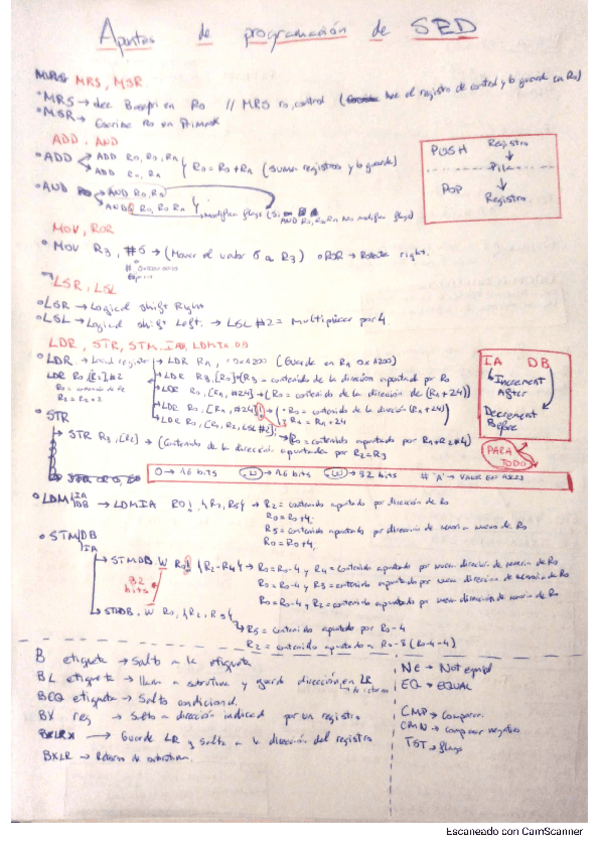 Apuntes de programación de SED
MRS, MSR
MRS → lee Basepri en R0 // MRS r0, control (lee el registro de control y lo guarda en R0)
MSR → Escribe R0 en Primask
ADD, AND
ADD ADD R0, R0, R1
ADD R0, R1 R0 = R0 + R1 (suma registros y lo guarda)
AND AND R0, R1
AND R0, R0 R1 modifica flags (Si AND R0, R0, R1 No modifica flags)
PUSH Registro
Pila
POP Registro
MOV, ROR
MOV R3, #5 → (Mover el valor 5 a R3) ROR → Rotate right.
LSR, LSL
LSR → Logical shift Right
LSL → Logical shift Left. → LSL #2 = Multiplicar por 4
LDR, STR, STM. IAB, LDMIA DB
LDR → Load register → LDR R1, =0x1200 (Guarda en R1 0x1200)
LDR R0, [R2], #2 → LDR R3, [R0] → (R3 = contenido de la dirección apuntada por R0
R0 = contenido de R2 → LDR R0, [R1, #24] → (R0 = contenido de la dirección de (R1 + 24))
R2 = R2 + 2 → LDR R0, [R1, #24]! → (R0 = contenido de la dirección (R1 + 24))
R1 = R1 + 24
→ LDR R0, [R1, R2, LSL #2]; → (R0 = contenido apuntado por R1 + R2 * 4)
IA DB
Increment After
Decrement Before
PARA TODO
STR
→ STR R3, [R2] → (Contenido de la dirección apuntada por R2 = R3
0 → 16 bits .N → 16 bits .W → 32 bits # 'A' → VALOR EN ASCII
LDM IA DB → LDMIA R0!, {R2, R5} → R2 = contenido apuntado por dirección de R0
R0 = R0 + 4;
R5 = contenido apuntado por dirección de memoria nueva de R0
R0 = R0 + 4;
STM DB IA
→ STMDB.W R0!, {R2-R4} → R0 = R0 - 4 y R4 = contenido apuntado por nueva dirección de memoria de R0
32 bits
R0 = R0 - 4 y R3 = contenido apuntado por nueva dirección de memoria de R0
R0 = R0 - 4 y R2 = contenido apuntado por nueva dirección de memoria de R0
→ STMDB.W R0, {R2, R5}
R5 = contenido apuntado por R0 - 4
R2 = contenido apuntado a R0 - 8 (R0 - 4 - 4)
B etiqueta → Salto a la etiqueta
BL etiqueta → llama a subrutina y guarda dirección en LR
de retorno
BEQ etiqueta → Salto condicional.
BX reg → Salto a dirección indicada por un registro
BLX → Guarda LR y salta a la dirección del registro
BXLR → Retorno de subrutina.
NE → Not equal
EQ → EQUAL
CMP → Comparar.
CMN → comparar negativo
TST → flags
Escaneado con CamScanner